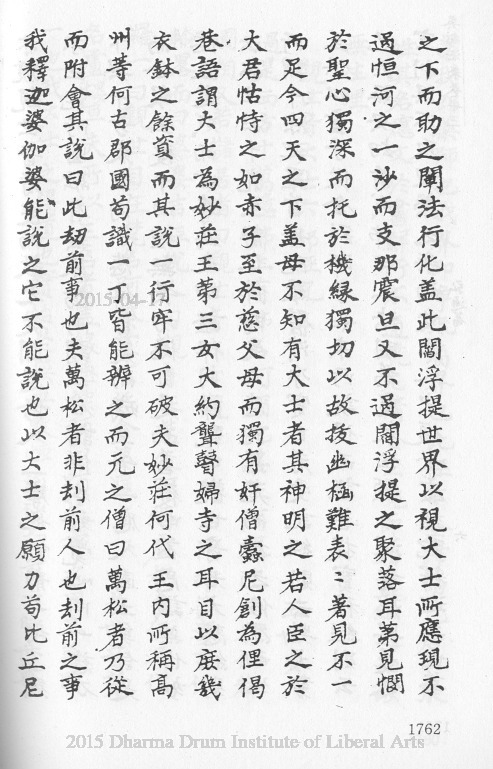 之下而助之闡法行化盖此閻浮提世界以視大士所應現不
過恒河之一沙而支那震旦又不過閻浮提之聚落耳第見憫
於聖心獨深而托於機緣獨切以故拔幽極難表〻著見不一
而足今四天之下盖毋不知有大士者其神明之若人臣之於
大君怙恃之如赤子至於慈父母而獨有奸僧蠹尼創為俚偈
巷語謂大士為妙莊王第三女大約聾瞽婦寺之耳目以庶幾
衣鉢之餘資而其說一行牢不可破夫妙莊何代王内所稱高
州等何古郡國苟識一丁皆能辨之而元之僧曰萬松者乃從
而附會其說曰此刼前事也夫萬松者非刦前人也刦前之事
我釋迦婆伽婆能說之它不能說也以大士之願力苟比丘尼
2015-04-17
1762
2015 Dharma Drum Institute of Liberal Arts